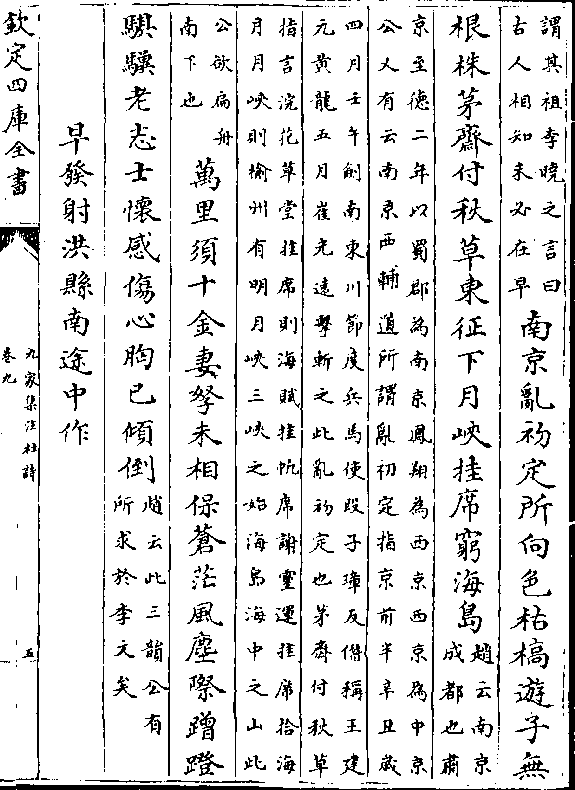 謂其祖李曉之言曰
古人相知未必在早
南京亂初定所向色枯槁遊子無
根株茅齋付秋草東征下月峽挂席窮海島
趙云南京
成都也肅
京至德二年以蜀郡為南京鳳翔為西京西京為中京
公又有云南京西輔道所謂亂初定指京前半辛丑歲
四月壬午劍南東川節度兵馬使段子璋反僭稱王建
元黃龍五月崔光遠擊斬之此亂初定也茅齋付秋草
指言浣花草堂挂席則海賦挂帆席謝靈運挂席拾海
月月峽則榆州有明月峽三峽之始海島海中之山此
公欲扁舟
南下也
萬里須十金妻孥未相保蒼茫風塵際蹭蹬
騏驎老志士懷感傷心胸已傾倒
趙云此三韻公有
所求於李文矣
早發射洪縣南途中作
欽定四庫全書
九家集注杜詩
卷九
五